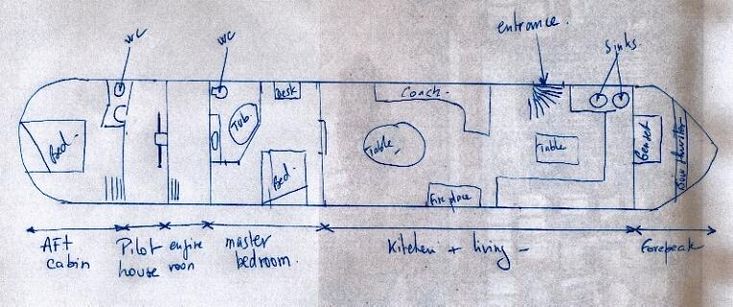 entrance.
wc
wc
Sinks
Desk
Coach
Tub.
Bed.
Bed.
Table
Table
Genset
Bow thruster
Fire place
Aft
cabin
Pilot
house
engine
room
master
bedroom.
Kitchen + living
Forepeak